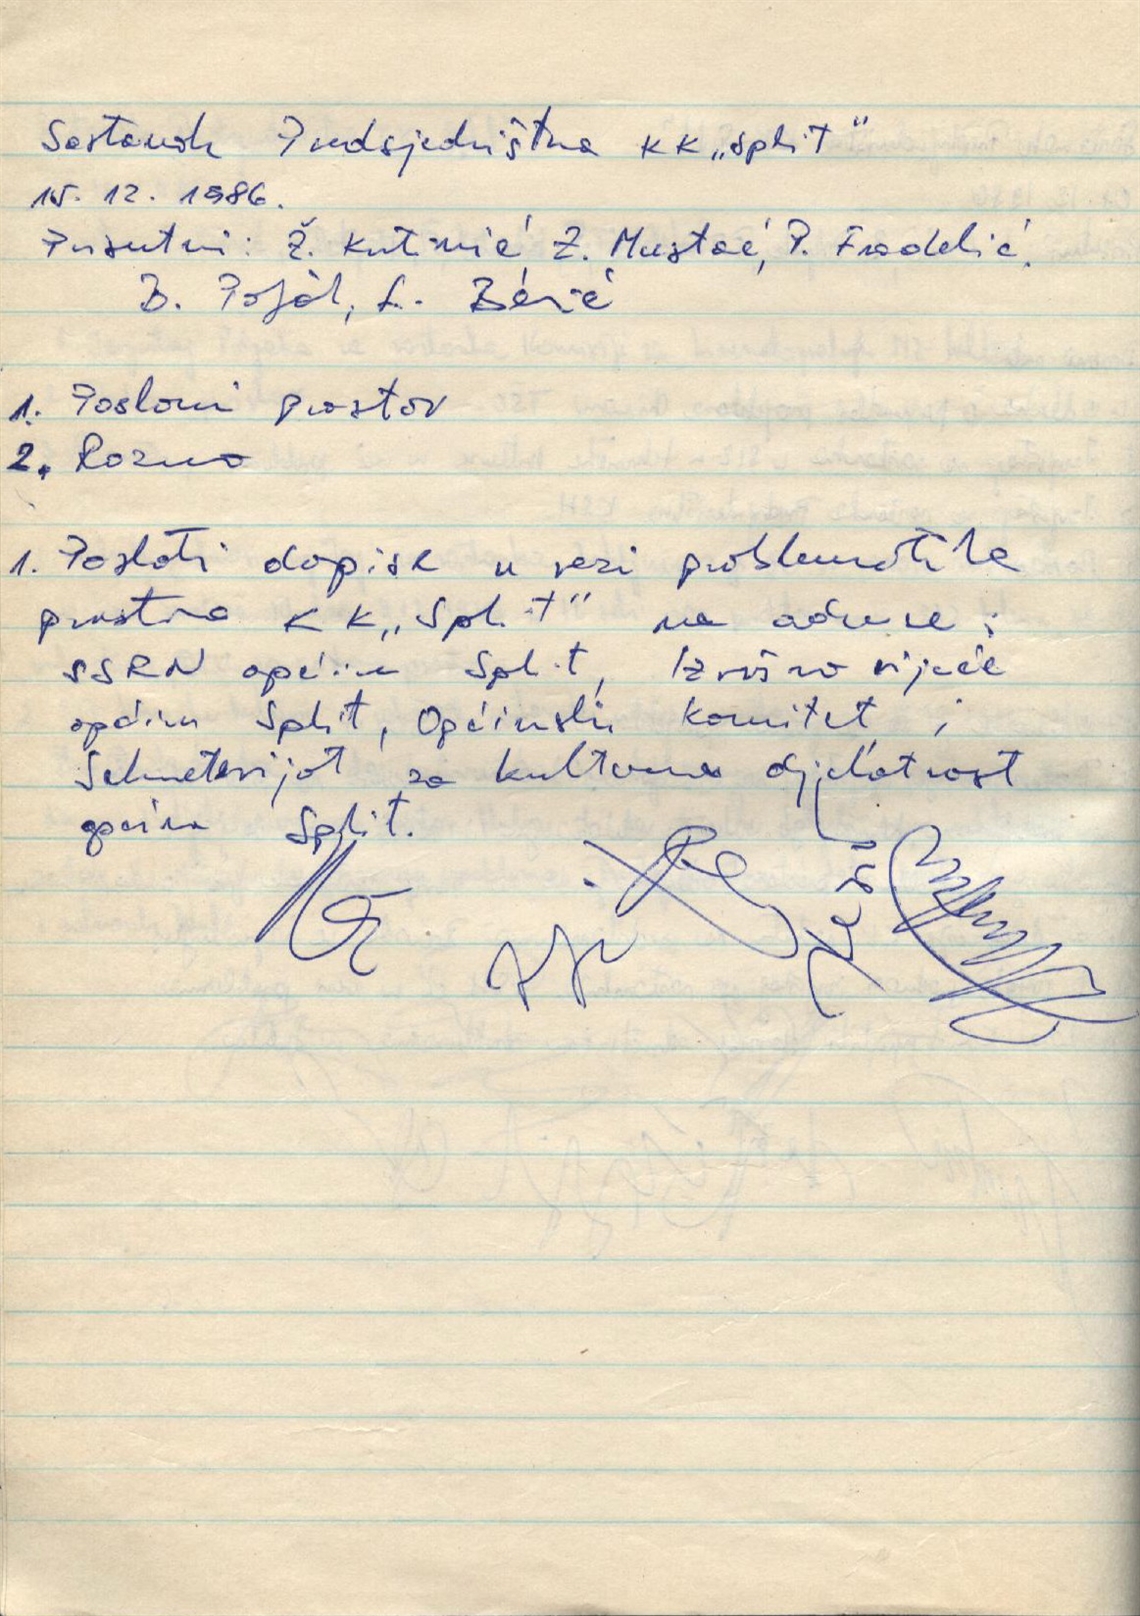 Sastanak Predsjedništva KK „Split"
15. 12. 1986.
Prisutni: Ž. Kutinić Z. Mustać, P. Fradelić,
B. L. Berić
1. Poslovni prostor
2. Razno
1. Poslati dopise u vezi problematike
prostora KK „Split" na adrese:
SSRN općine Split, Izvršno vijeće
općine Split, Općinski komitet i
Sekretarijat za kulturnu djelatnost
općine Split.